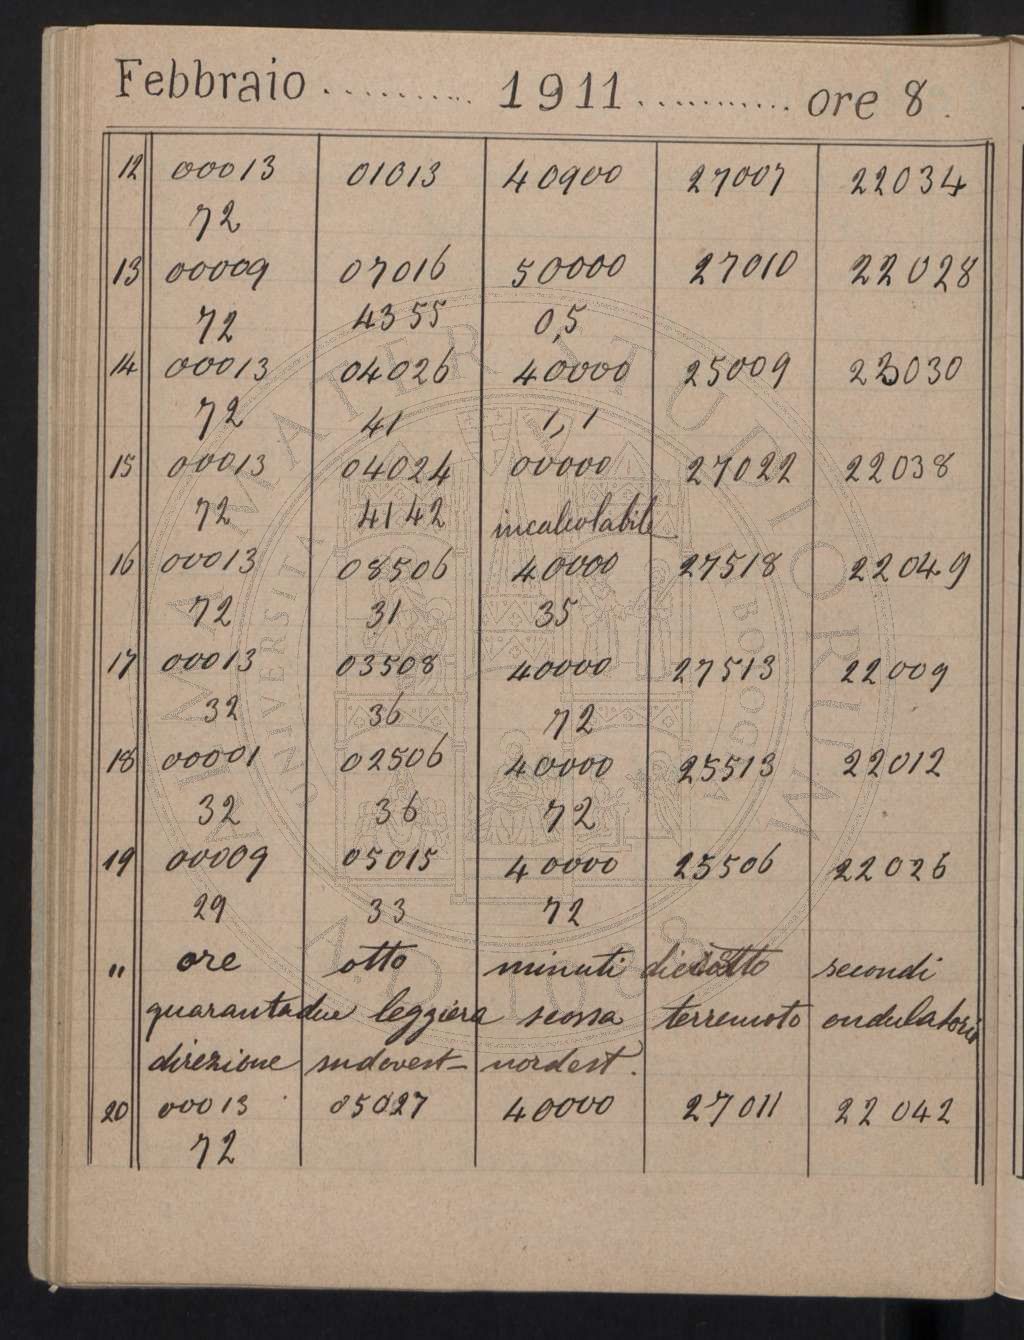 Febbraio .......... 1911 ........... ore 8.
12 00013 01013 40900 27007 22034
72
13 00009 07016 50000 27010 22028
72 4355 0,5
14 00013 04026 40000 25009 22030
72 41 1,1
15 00013 04024 00000 27022 22038
72 4142 incalcolabile
16 00013 08506 40000 27518 22049
72 31 35
17 00013 03508 40000 27513 22009
32 36 72
18 00001 02506 40000 25513 22012
32 36 72
19 00009 05015 40000 25506 22026
29 33 72
" ore otto minuti diciotto secondi
quarantadue leggiera scossa terremoto ondulatorio
direzione sudovest - nordest.
20 00013 05027 40000 27011 22042
72
ALMA MATER STUDIORUM
UNIVERSITA DI BOLOGNA
A.D. 1088